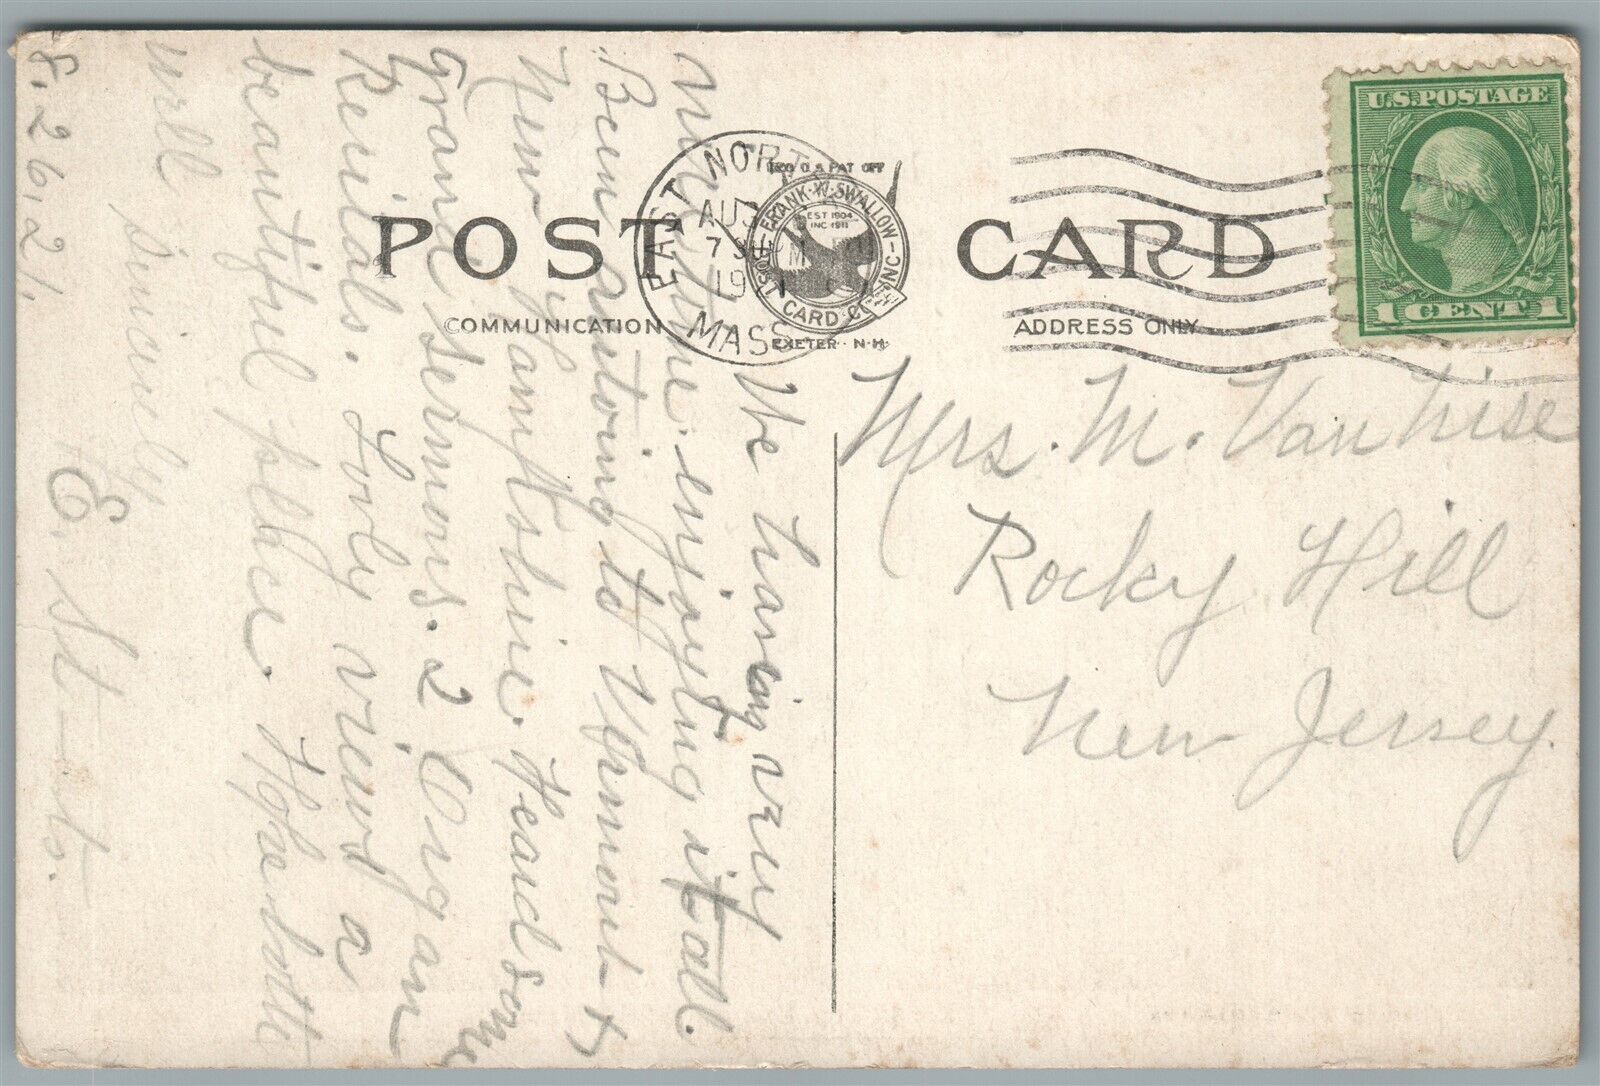 POST CARD
COMMUNICATION
ADDRESS ONLY
U.S. POSTAGE
1 CENT 1
EAST NORT
AUG
7 30
19
MASS
REG U S PAT OFF
FRANK W. SWALLOW
POST CARD CO. INC
EST 1904
INC 1911
EXETER - N.H.
We having very
nice time. enjoying it all.
Been autoing to Vermont &
New Hampshire. Heard some
Grand sermons. 2 Organ
Recitals. Lovly views a
beautiful place. Hope
well
Sincerely
E. St
8.26.21.
Mrs. M. Van Nise
Rocky Hill
New Jersey.